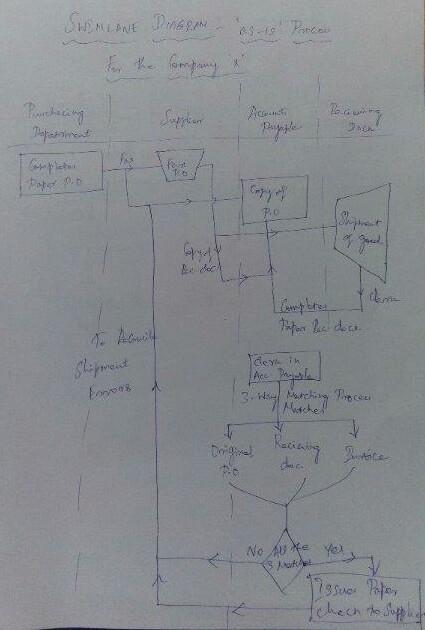 SWIMLANE DIAGRAM - 'AS-IS' Process
For the Company 'X'
Purchasing
Department
Supplier
Accounts
Payable
Receiving
Dock
Completes
Paper P.O
Fax
Faxe
P.O
Copy of
P.O
Shipment
of good
Copy of
Rec doc
Clerk
Completes
Paper Rec. docs
To
Shipment
Errors
Clerk in
Acc. Payable
3-Way Matching Process
Matches
Original
P.O
Receiving
doc.
Invoice
No
All the
3 Matches
Yes
Issues Paper
check to Supplier